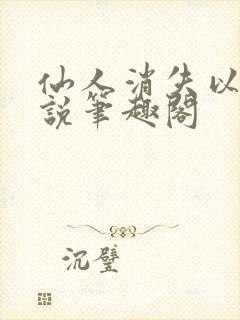 仙人消失以
說筆趣閣
沉璧